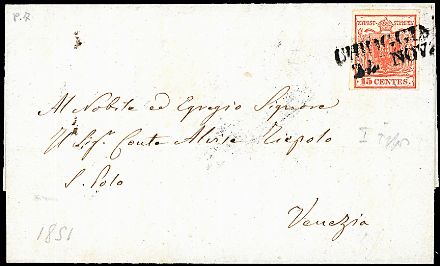 P.R
KKPOST-STEMPEL
15 CENTES.
CHIOGGIA
24 NOV.
Al Nobile ed Egregio Signore
Il Sigr. Conte Alvise Tiepolo
S. Polo
Venezia
1851